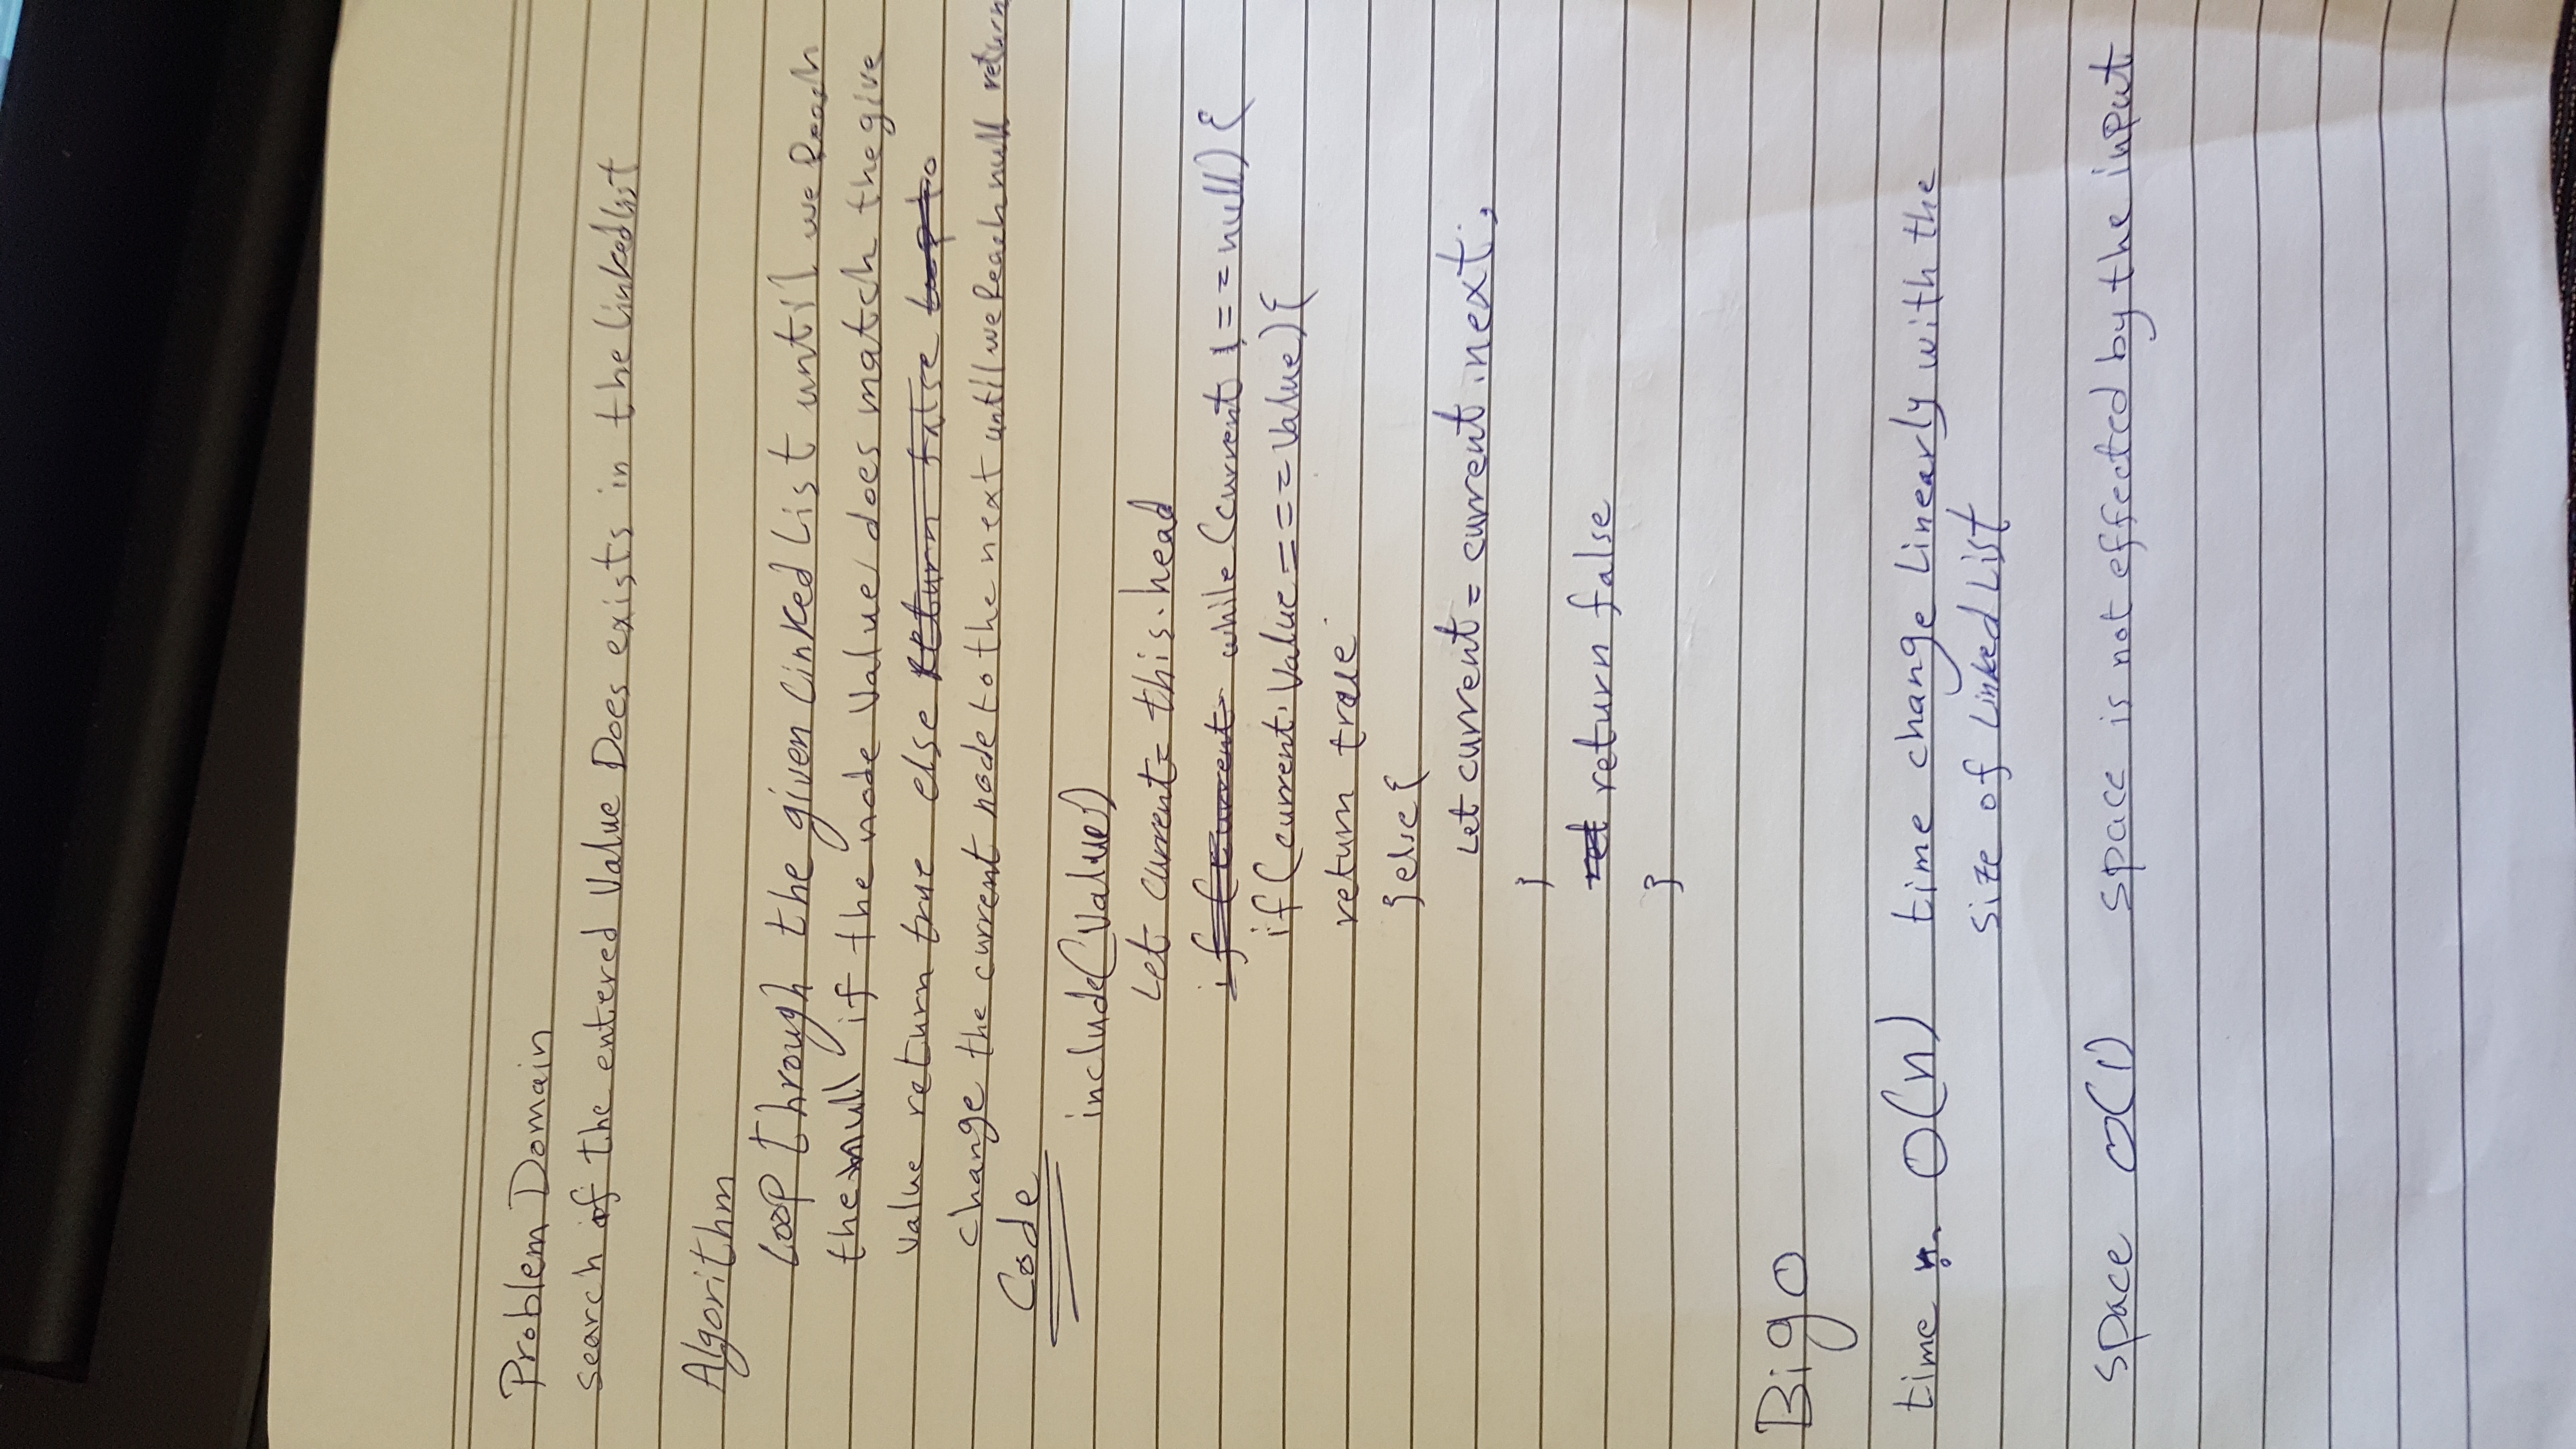 Problem Domain
search if the entered Value Does exists in the linkedlist
Algorithm
Loop through the given Linked List until we Reach
the null if the node Value does match the give
value return true else return false loop to
change the current node to the next until we Reach null return
Code
include(Value)
Let current = this.head
if (current while (current !== null) {
if (current.Value === Value) {
return true
} else {
Let current = current.next;
}
ret return false
}
Big O
time O(n) time change Linearly with the
size of Linked List
space O(1) space is not effected by the input